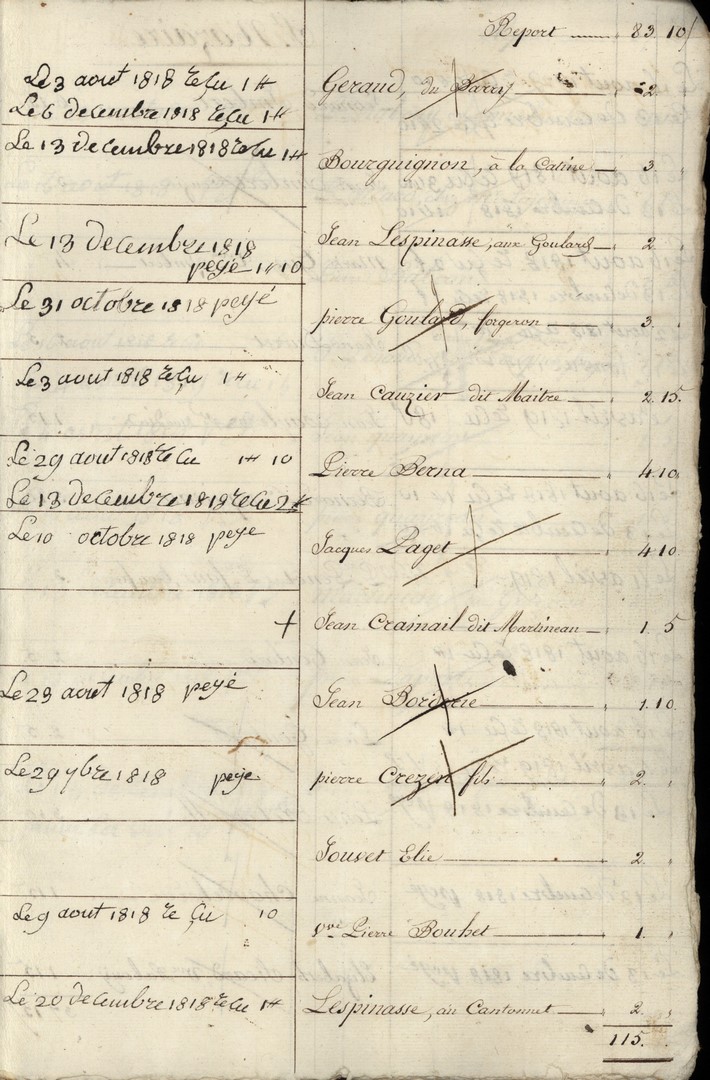 Report — " 83. 10/
Le 3 aout 1818 reçu 1 #
Geraud, du Barry — " 2. "
Le 6 decembre 1818 reçu 1 #
Le 13 decembre 1818 reçu 1 #
Bourguignon, à la Catine — " 3. "
Le 13 decembre 1818
Jean Lespinasse, aux Goulard — " 2. "
peyé 1 # 10
Le 31 octobre 1818 peyé
pierre Goulard, forgeron — " 3. "
Le 3 aout 1818 reçu 1 #
Jean Cauzier dit Maitre — " 2. 15.
Le 29 aout 1818 reçu 1 # 10
Pierre Berna — " 4. 10.
Le 13 decembre 1818 reçu 2 #
Le 10 octobre 1818 peye
Jacques Paget — " 4. 10.
+ Jean Cramail dit Martineau — " 1. 5
Le 23 aout 1818 peyé
Jean Borderie — " 1. 10.
Le 29 7bre 1818 peye
pierre Crezen fils — " 2. "
Jouvet Elie — " 2. "
Le 9 aout 1818 reçu 10
vve Pierre Bouhet — " 1. "
Le 20 decembre 1818 reçu 1 #
Lespinasse, au Cantonnet — " 2. "
115. "